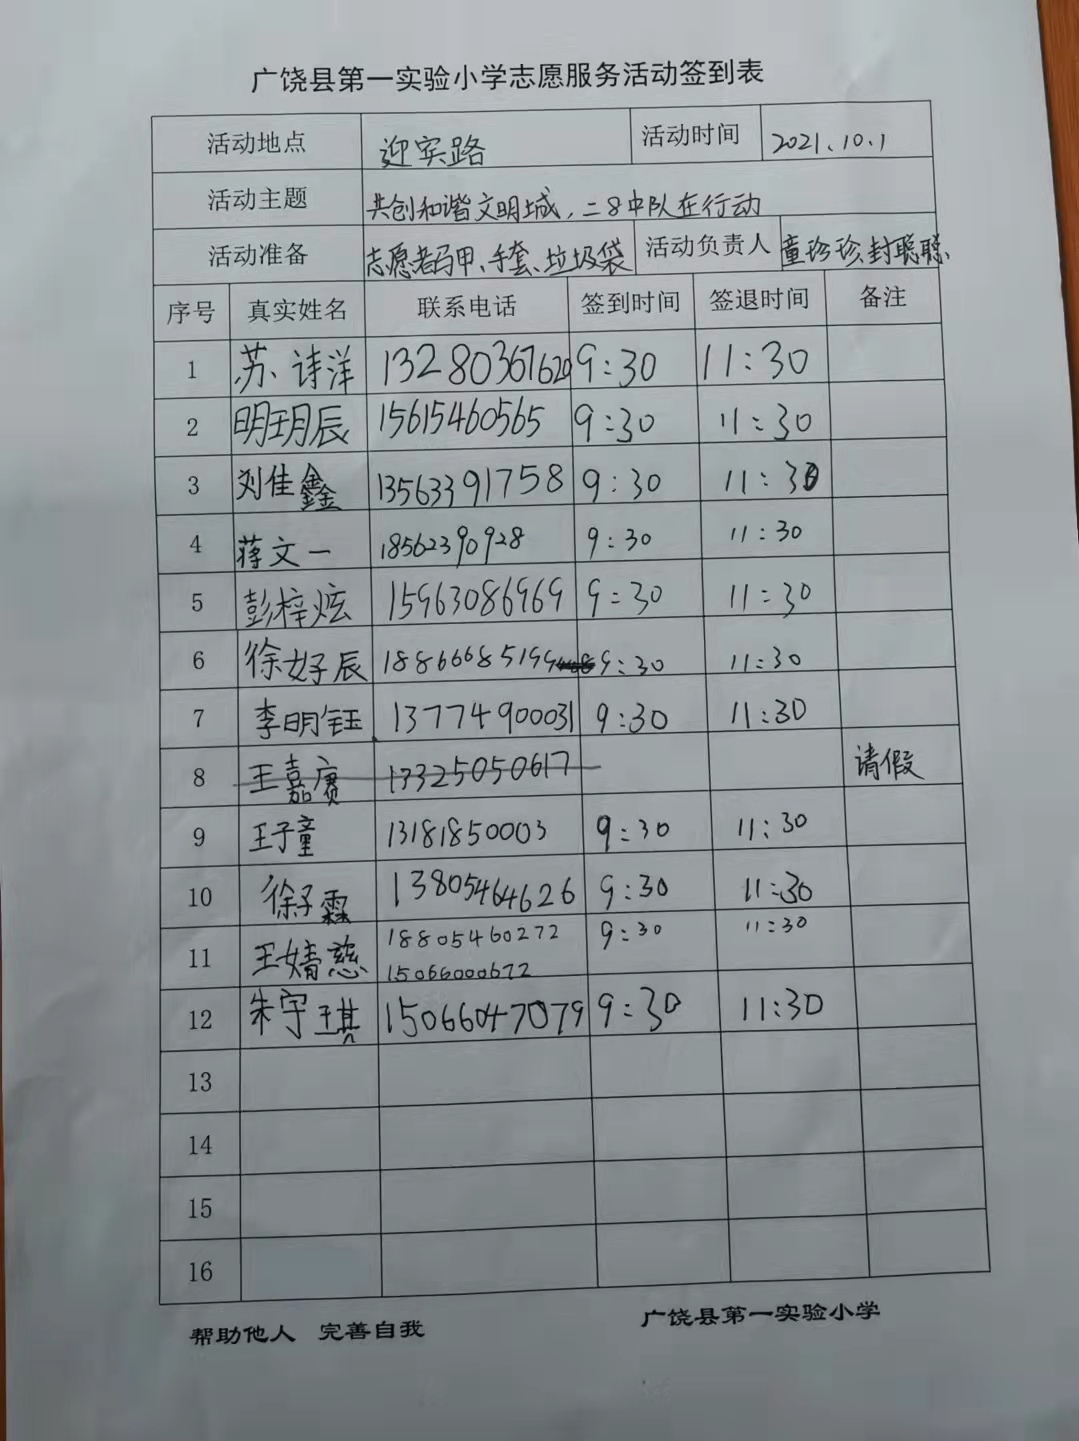 广饶县第一实验小学志愿服务活动签到表
活动地点 迎宾路 活动时间 2021.10.1
活动主题 共创和谐文明城，二8中队在行动
活动准备 志愿者马甲、手套、垃圾袋 活动负责人 童珍珍、封聪聪、
序号 真实姓名 联系电话 签到时间 签退时间 备注
1 苏诗洋 13280367620 9:30 11:30
2 明玥辰 15615460565 9:30 11:30
3 刘佳鑫 13563391758 9:30 11:30
4 蒋文一 18562390928 9:30 11:30
5 彭梓炫 15963086969 9:30 11:30
6 徐好辰 18866685199 9:30 11:30
7 李明钰 13774900031 9:30 11:30
8 王嘉赛 17325050617 请假
9 王子童 13181850003 9:30 11:30
10 徐子霖 13805464626 9:30 11:30
11 王婧慈 18805460272 9:30 11:30
15066000672
12 朱宇琪 15066047079 9:30 11:30
13
14
15
16
帮助他人 完善自我 广饶县第一实验小学